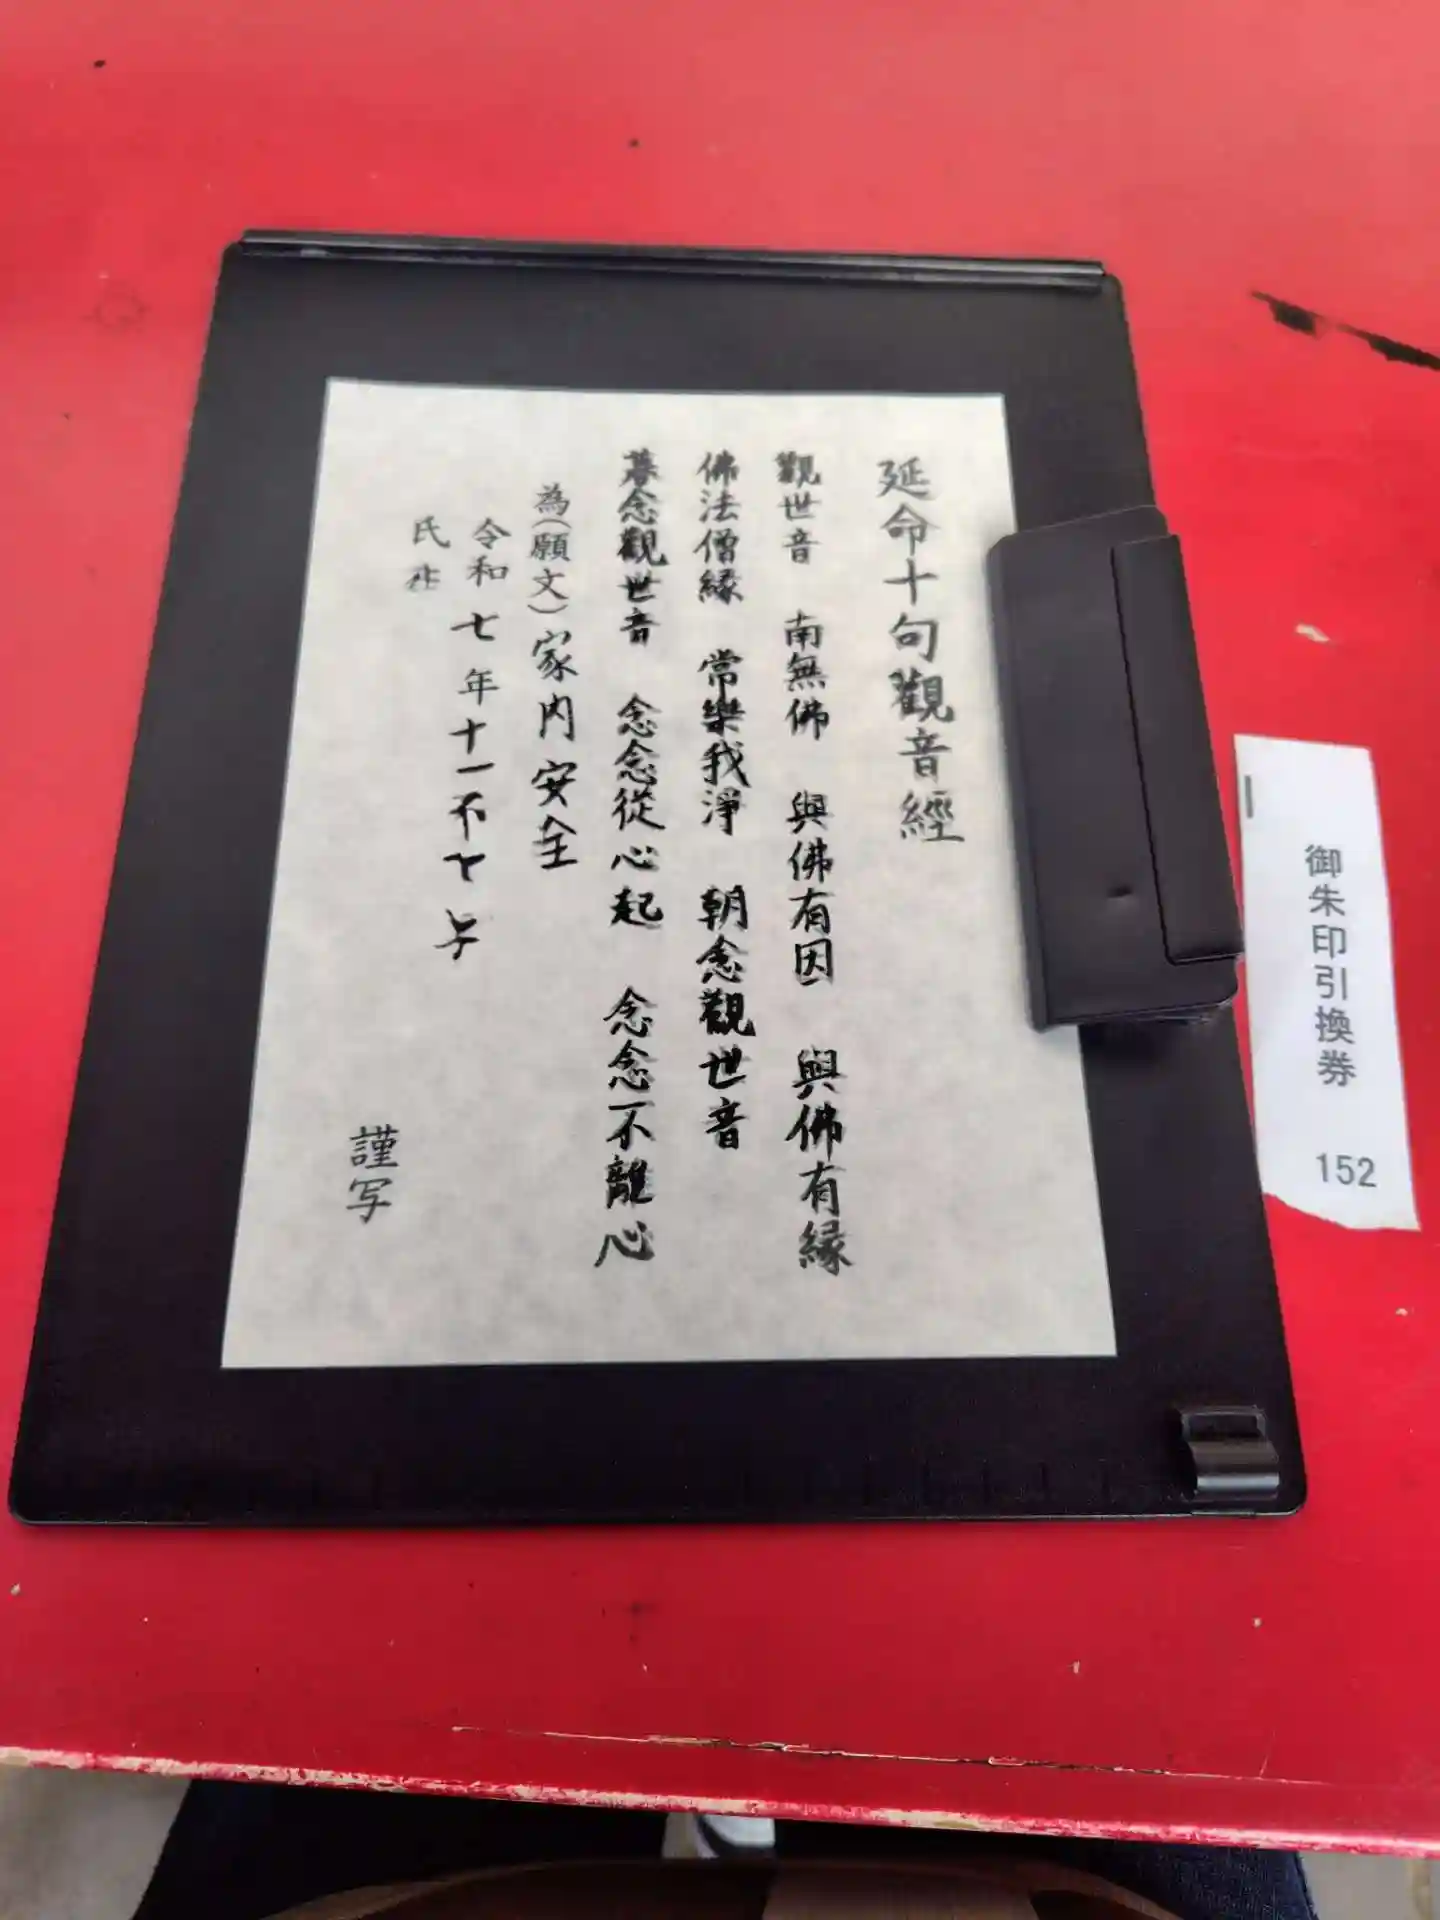 延命十句觀音經
觀世音 南無佛 與佛有因 與佛有縁
佛法僧縁 常樂我淨 朝念觀世音
暮念觀世音 念念從心起 念念不離心
為(願文)家内安全
令和 七 年 十一
氏
謹写
御朱印引換券
152